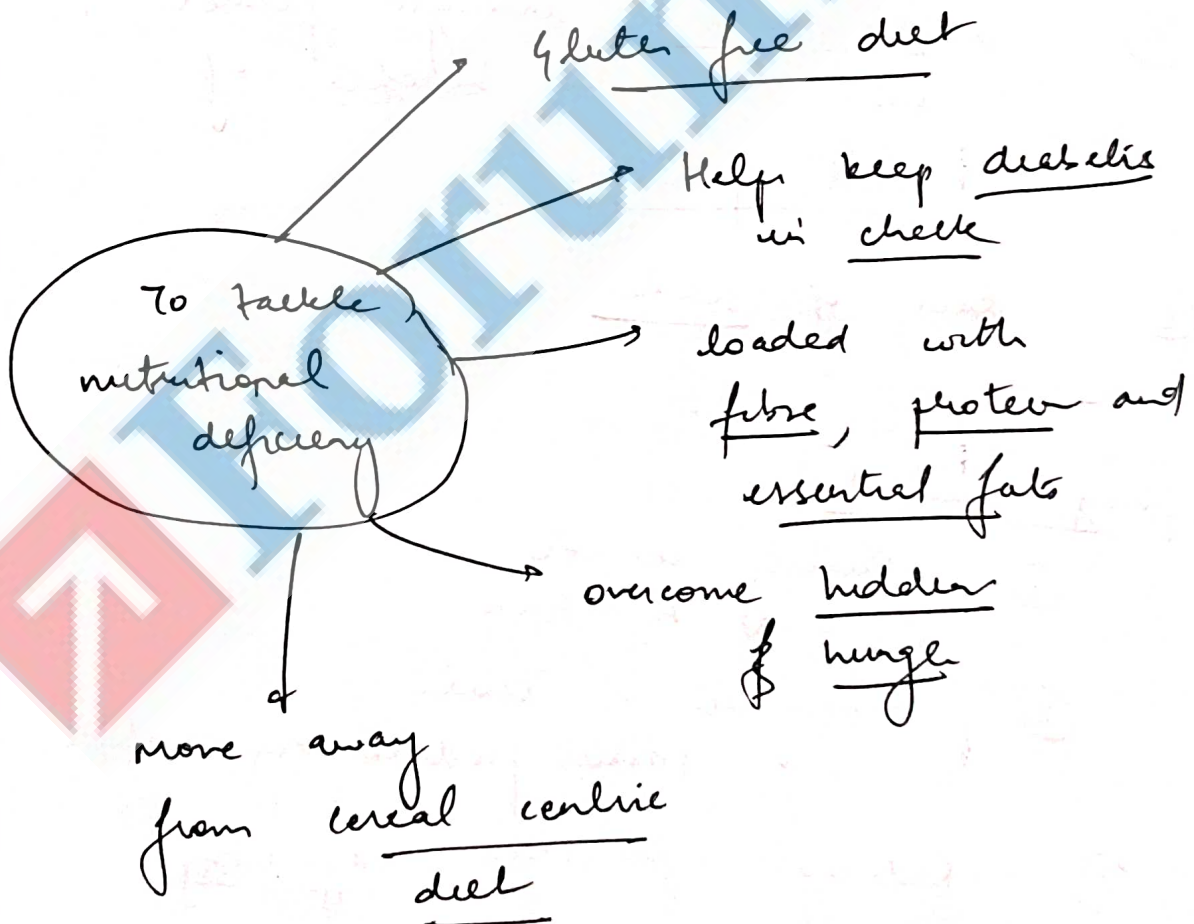 Gluten free diet
Help keep diabetis
in check
To tackle
nutritional
deficiency
loaded with
fibre, protein and
essential fats
overcome hidden
hunger
Move away
from cereal centric
diet
Forum